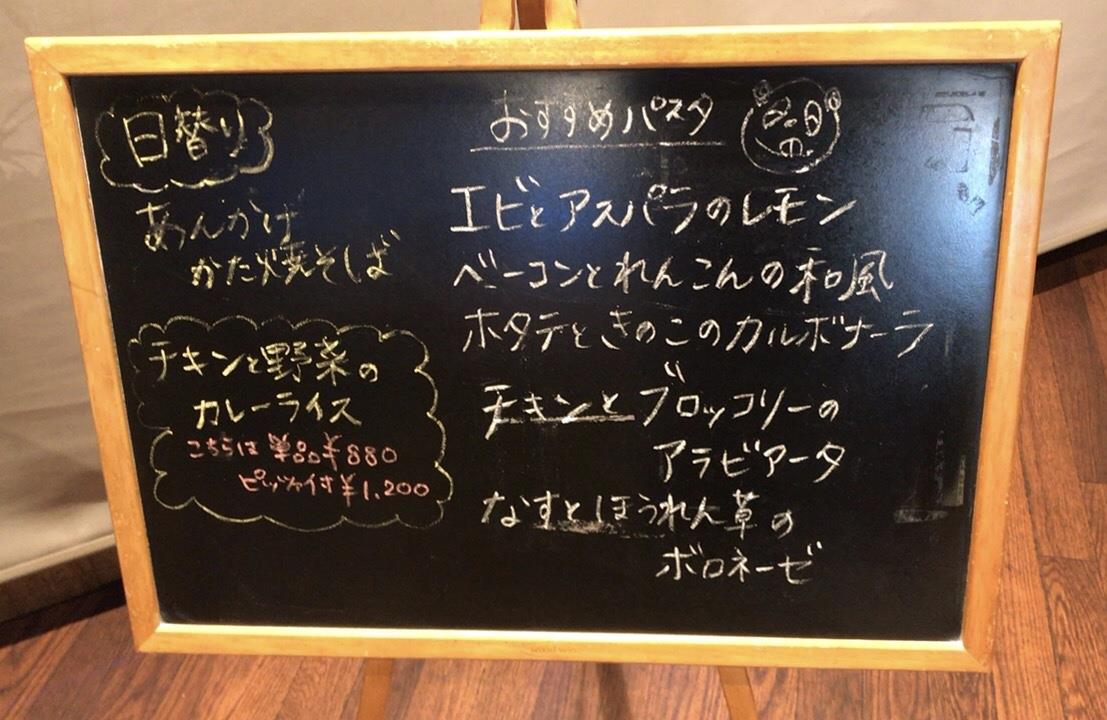 日替り
あんかけ
かた焼そば
チキンと野菜の
カレーライス
こちらは単品¥880
ピッツァ付¥1,200
おすすめパスタ
エビとアスパラのレモン
ベーコンとれんこんの和風
ホタテときのこのカルボナーラ
チキンとブロッコリーの
アラビアータ
なすとほうれん草の
ボロネーゼ